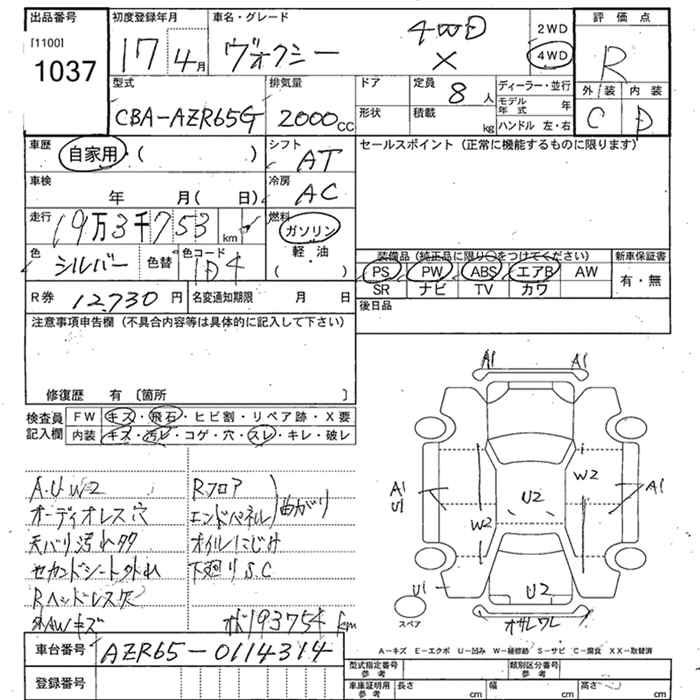 出品番号 初度登録年月 車名・グレード 評価点
[1100] 1037 17年 4月 ヴォクシー 4WD X 2WD 4WD R
型式 排気量 ドア 定員 8人 ディーラー・並行 外装 内装
CBA-AZR65G 2000CC 形状 積載 kg モデル年式 年 C D
ハンドル 左・右
車歴 自家用・( ) シフト AT セールスポイント (正常に機能するものに限ります)
車検 年 月( 日) 冷房 AC
走行 19万3千753 km 燃料 ガソリン・軽油・( )
色 シルバー 色替 色コード 1D4
装備品 (純正品に限り○をつけてください) 新車保証書
PS PW ABS エアB AW 有・無
SR ナビ TV カワ
R券 12,730円 名変通知期限 月 日 後日品
注意事項申告欄 (不具合内容等は具体的に記入して下さい)
修復歴 有 〔箇所 〕
検査員記入欄 FW キズ・飛石・ヒビ割・リペア跡・X要
内装 キズ・汚レ・コゲ・穴・スレ・キレ・破レ
A1 A1
A.U W2 Rフロア
オーディオレス穴 エンドパネル 曲がり
天バリ汚れ多 オイルにじみ
セカンドシート外れ 下廻りS.C
Rヘッドレス欠
AWキズ 193754km
A1 U1 W2 W2 U2 A1
U1 U2
スペア オサレワレ
A-キズ E-エクボ U-凹み W-補修跡 S-サビ C-腐食 XX-取替済
車台番号 AZR65-0114314
登録番号
型式指定番号 参考 類別区分番号 参考
車庫証明用 参考 長さ cm 幅 cm 高さ cm